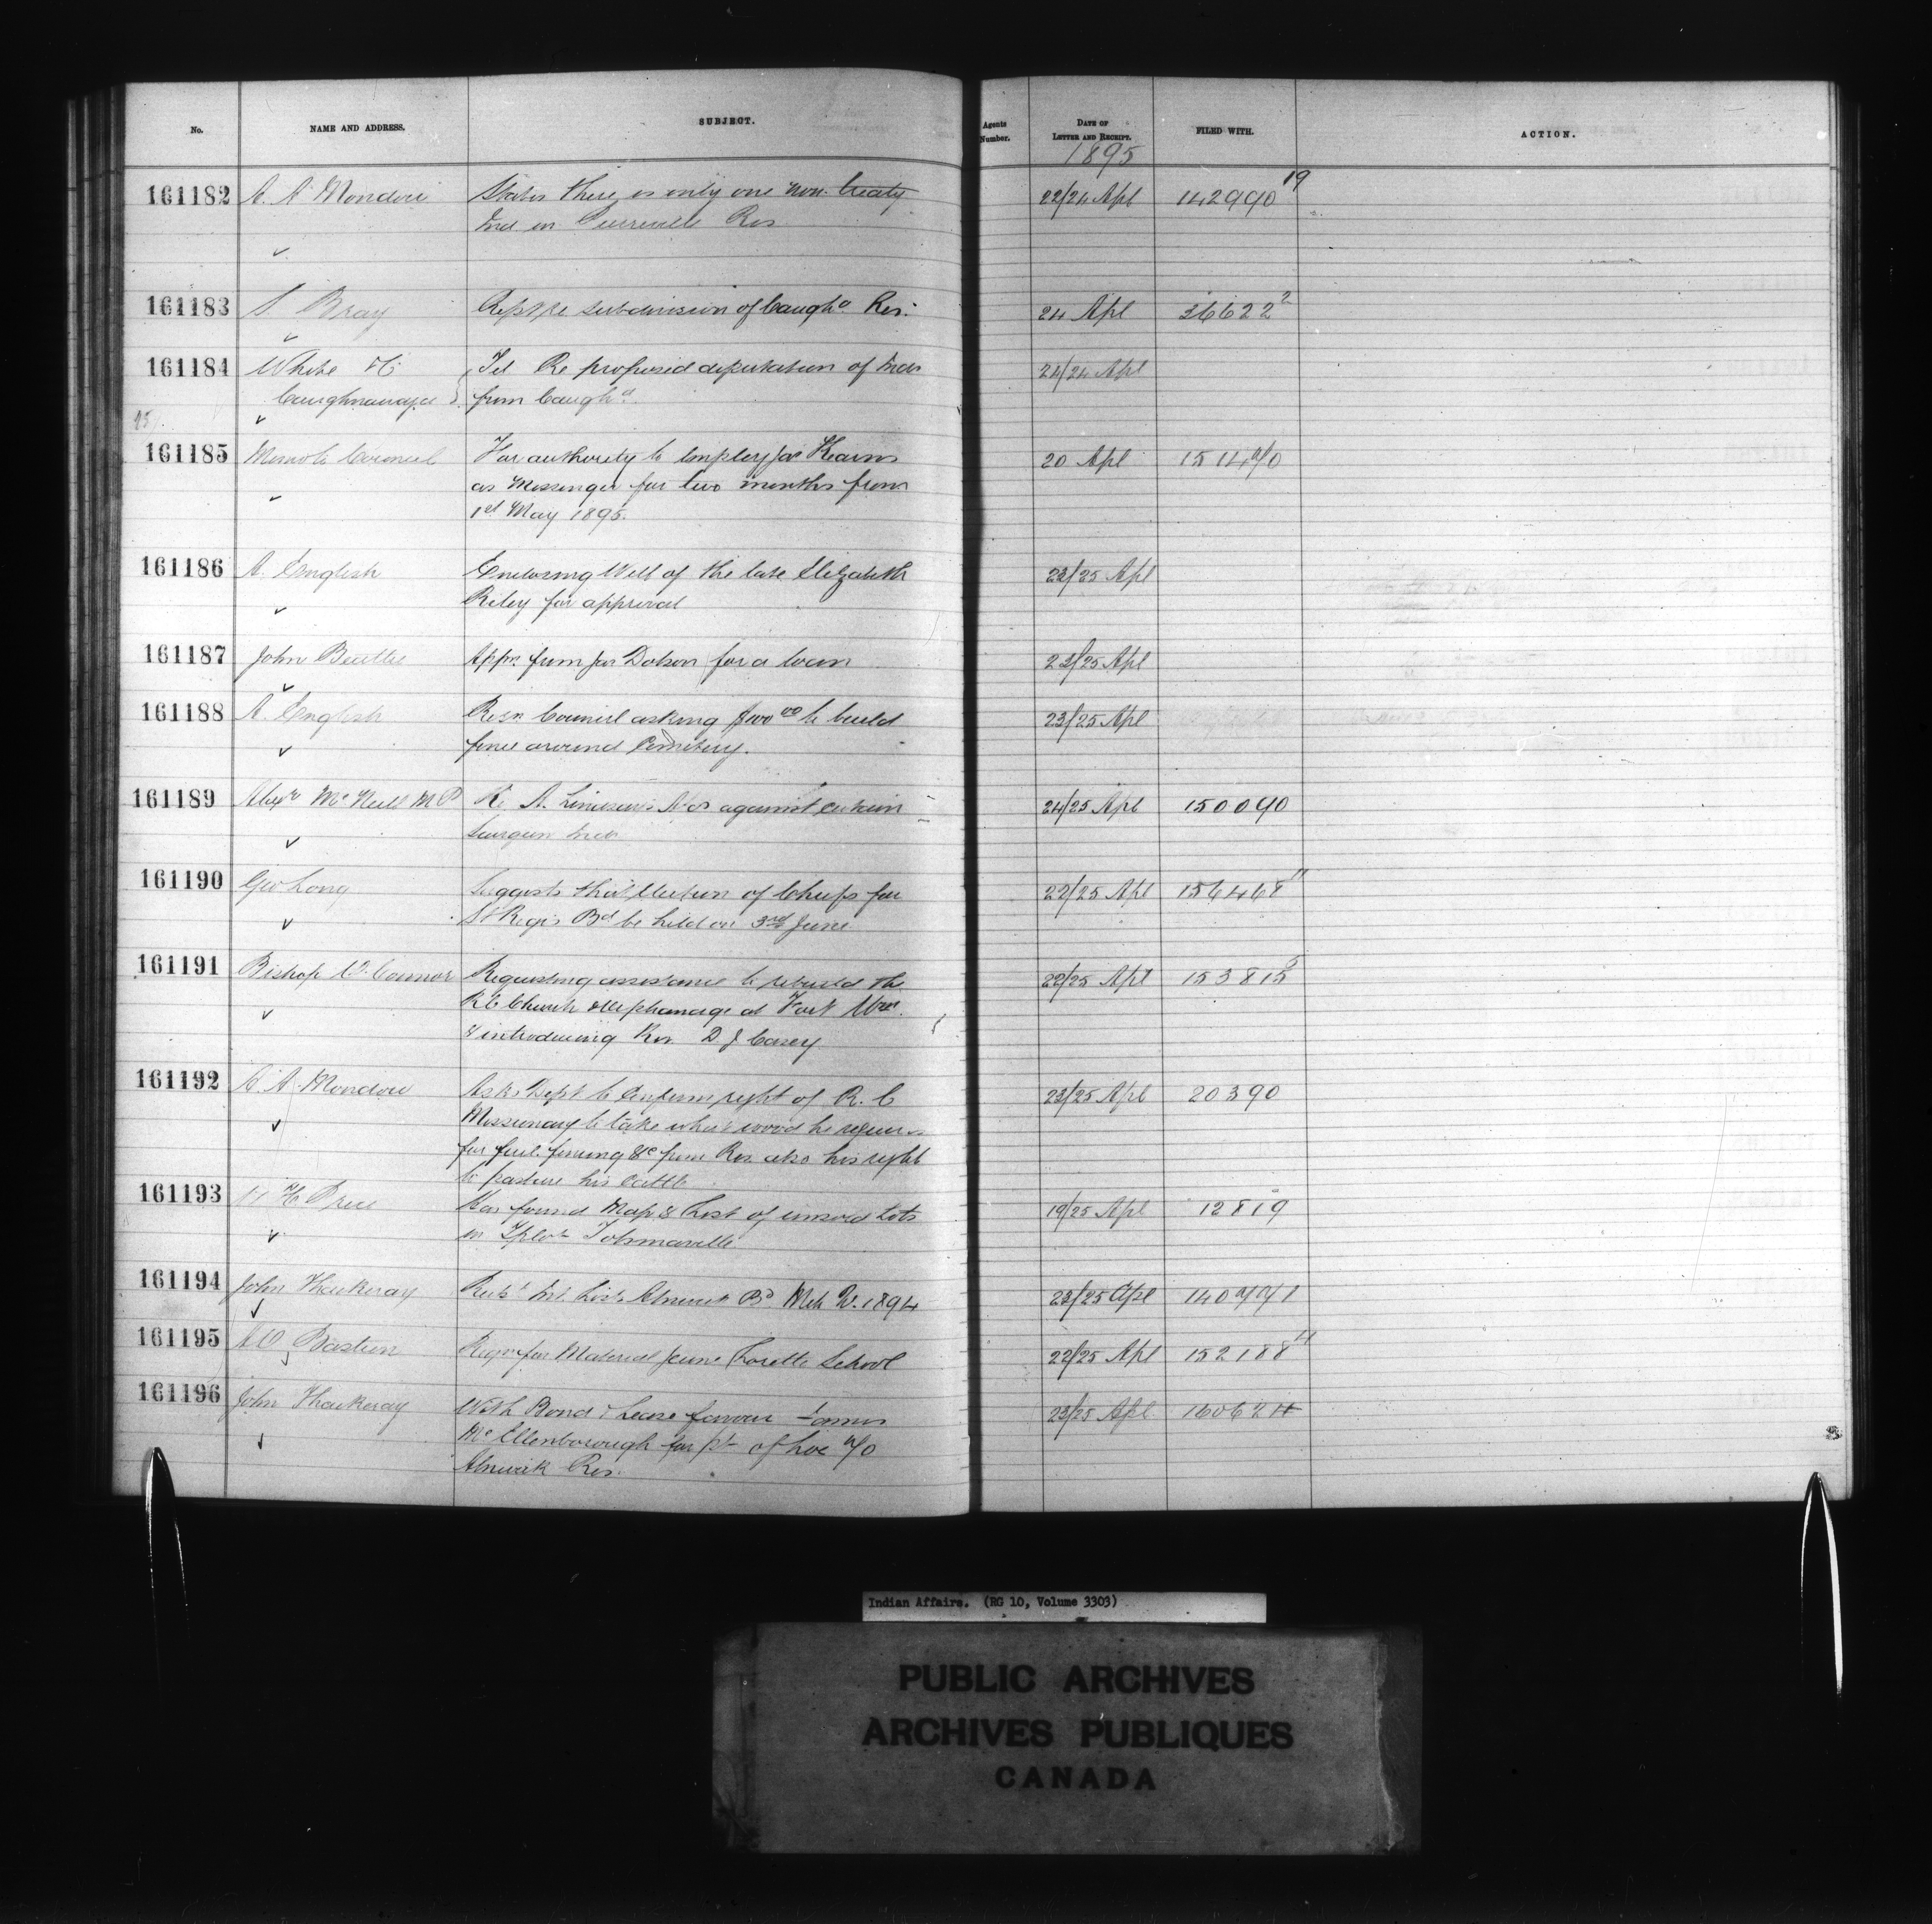 No. NAME AND ADDRESS. SUBJECT. Agents Number. DATE OF LETTER AND RECEIPT. FILED WITH. ACTION.
1895
161182 A. A. Mondou States there is only one non-treaty 22/24 Apl 142990 19
Ind on Pierreville Res
161183 S Bray Rept re subdivision of Caugha Res. 24 Apl 36622 2
161184 White &c Tel Re proposed deputation of Inds 24/24 Apl
Caughnawaga from Caugha
95
161185 Memo to Council For authority to employ Jas Kearns 20 Apl 151470
as Messenger for two months from
1st May 1895.
161186 A. English Enclosing Will of the late Elizabeth 22/25 Apl
Riley for approval
161187 John Beattie Appn from Jas Dobson for a loan 23/25 Apl
161188 A. English Resn Council asking $100 00 to build 23/25 Apl
fence around Cemetery.
161189 Alexr McNeill M P Re A. against certain 24/25 Apl 150090
Saugeen Inds
161190 Geo Long Suggests that Election of Chiefs for 22/25 Apl 156468 11
St Regis Bd be held on 3rd June
161191 Bishop O'Connor Requesting assistance to rebuild the 22/25 Apl 153815
R C Church & Orphanage at Fort Wm.
& introducing Rev. D J Casey
161192 A. A. Mondou Asks Dept to Confirm right of R. C 23/25 Apl 20390
Missionary to take what wood he requires
for fuel fencing &c from Res. also his right
to pasture his cattle
161193 H Price Has found Map & List of unsold Lots 19/25 Apl 12819
in T'plot
161194 John Thackeray Retd Int. Lists Alnwick Bd. Mch Qr. 1894 23/25 Apl 140771
161195 A O Bastien Reqn for Material Jeune Lorette School 22/25 Apl 152188
161196 John Thackeray With Bond & Lease favour James 23/25 Apl 160624
McEllenborough for pt of Lot 7/0
Alnwick Res.
Indian Affairs. (RG 10, Volume 3303)
PUBLIC ARCHIVES
ARCHIVES PUBLIQUES
CANADA